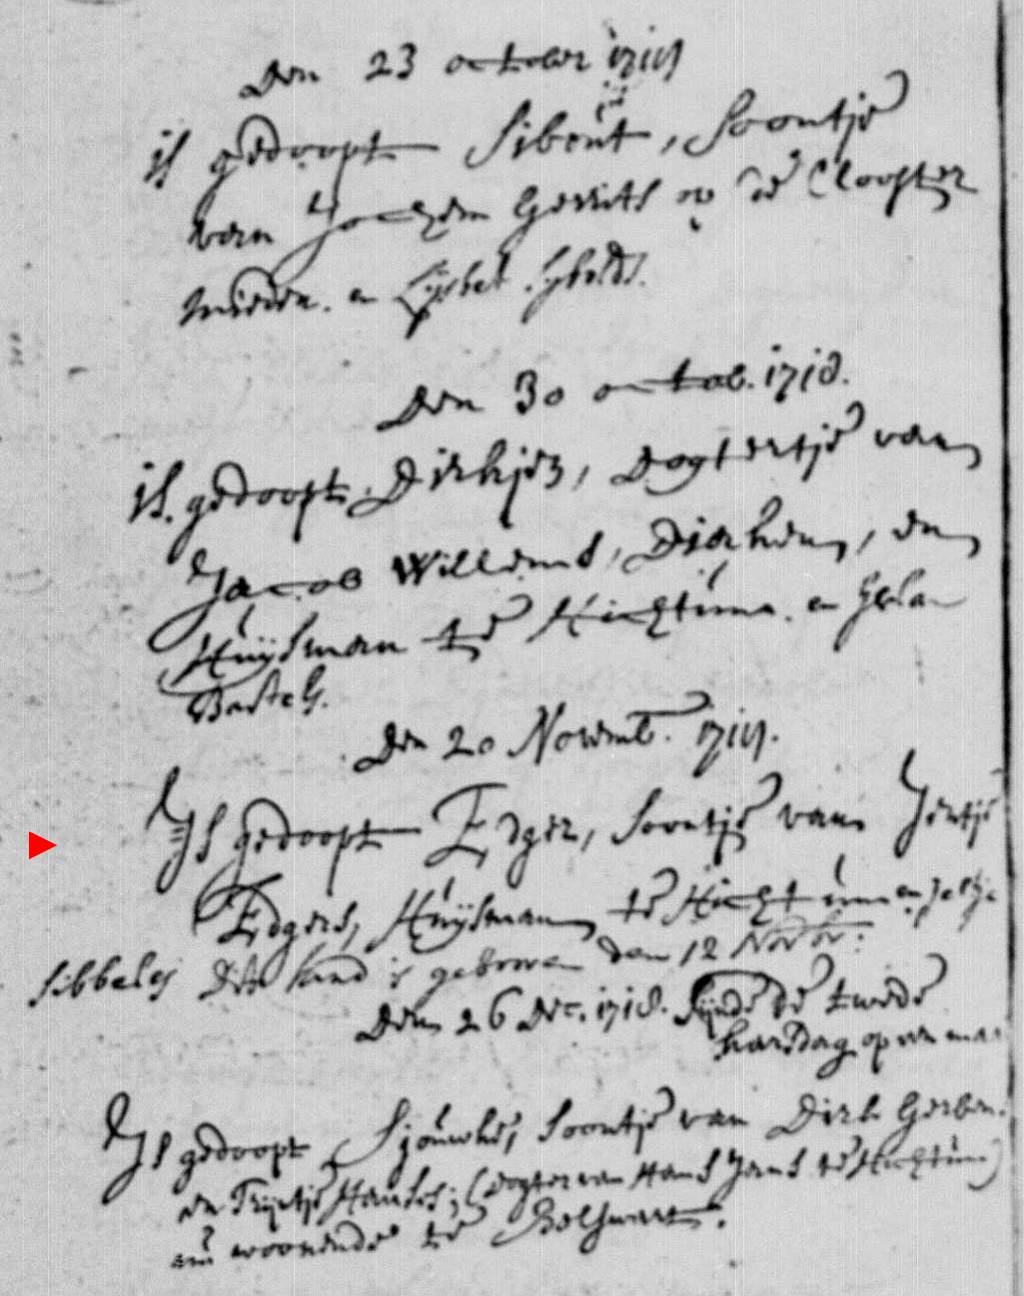 Den 23 october 1718
is gedoopt Sibout, Soontje
van Jochem Gerrits op de Clooster
mieden. en Lijsbet Sybolds.
Den 30 octob. 1718.
is. gedoopt, Dirkjen, dogtertje van
Jacob Willems, Diaken, en
Huijsman te Hichtum. en
Bartels.
Den 20 Novemb. 1718.
Is gedoopt Edger, Soontje van Jentje
Edgers, Huijsman te Hichtum en Jeltje
Sibbeles Dit kind is geboren den 12 Novbr:
Den 26 Dec. 1718. sijnde de twede
karsdag op een ma
Is gedoopt Sjouwke, Soontje van Dirk Gerben.
en Trijntje Hanses; (dogter van Hans Jans te Hichtum)
nu woonende te Bolswart.